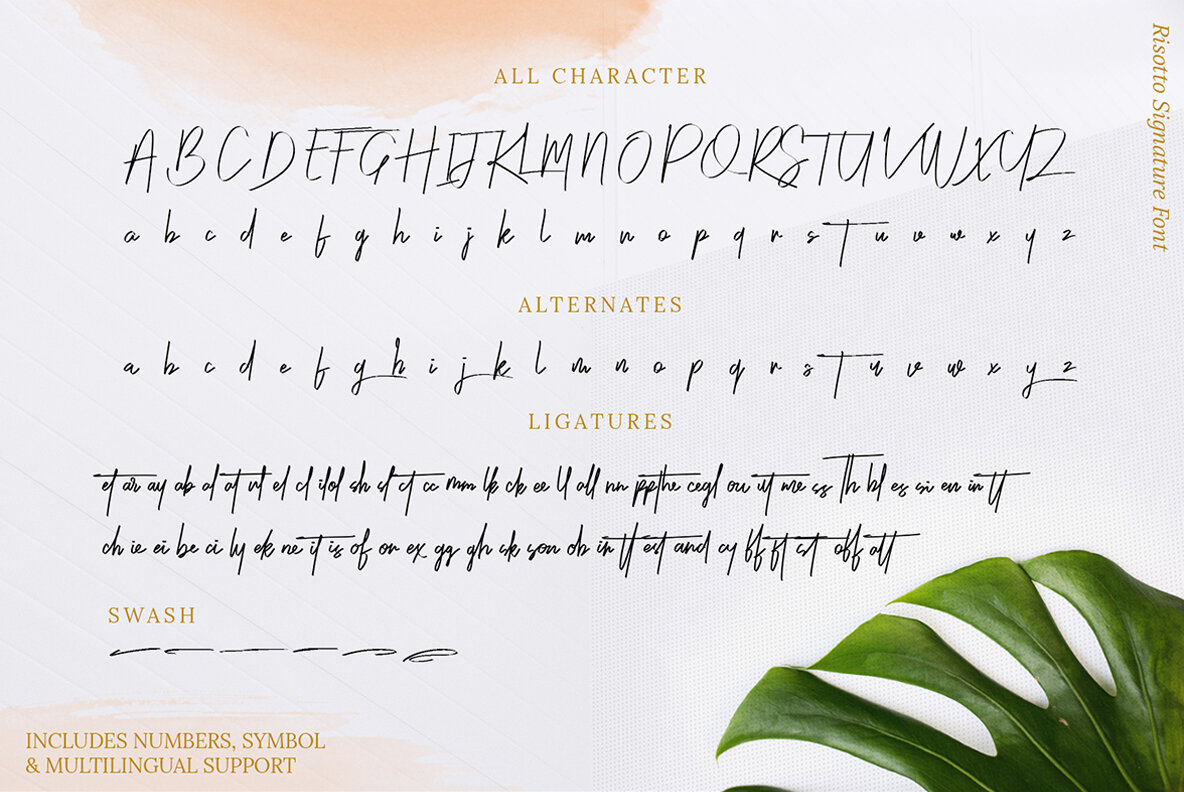 ALL CHARACTER
A B C D E F G H I J K L M N O P Q R S T U V W X Y Z
a b c d e f g h i j k l m n o p q r s t u v w x y z
ALTERNATES
a b c d e f g h i j k l m n o p q r s t u v w x y z
LIGATURES
et ar ay ab al at ut el cl ilol sh sl ct cc mm lk ck ee ll all nn pp the cegl ou ut me ss Th bl es si en in tt
ch ie ei be ci ly ek ne it is of on ex gg gh sk son ob in tt est and cy ff ft st off att
SWASH
INCLUDES NUMBERS, SYMBOL
& MULTILINGUAL SUPPORT
Risotto Signature Font